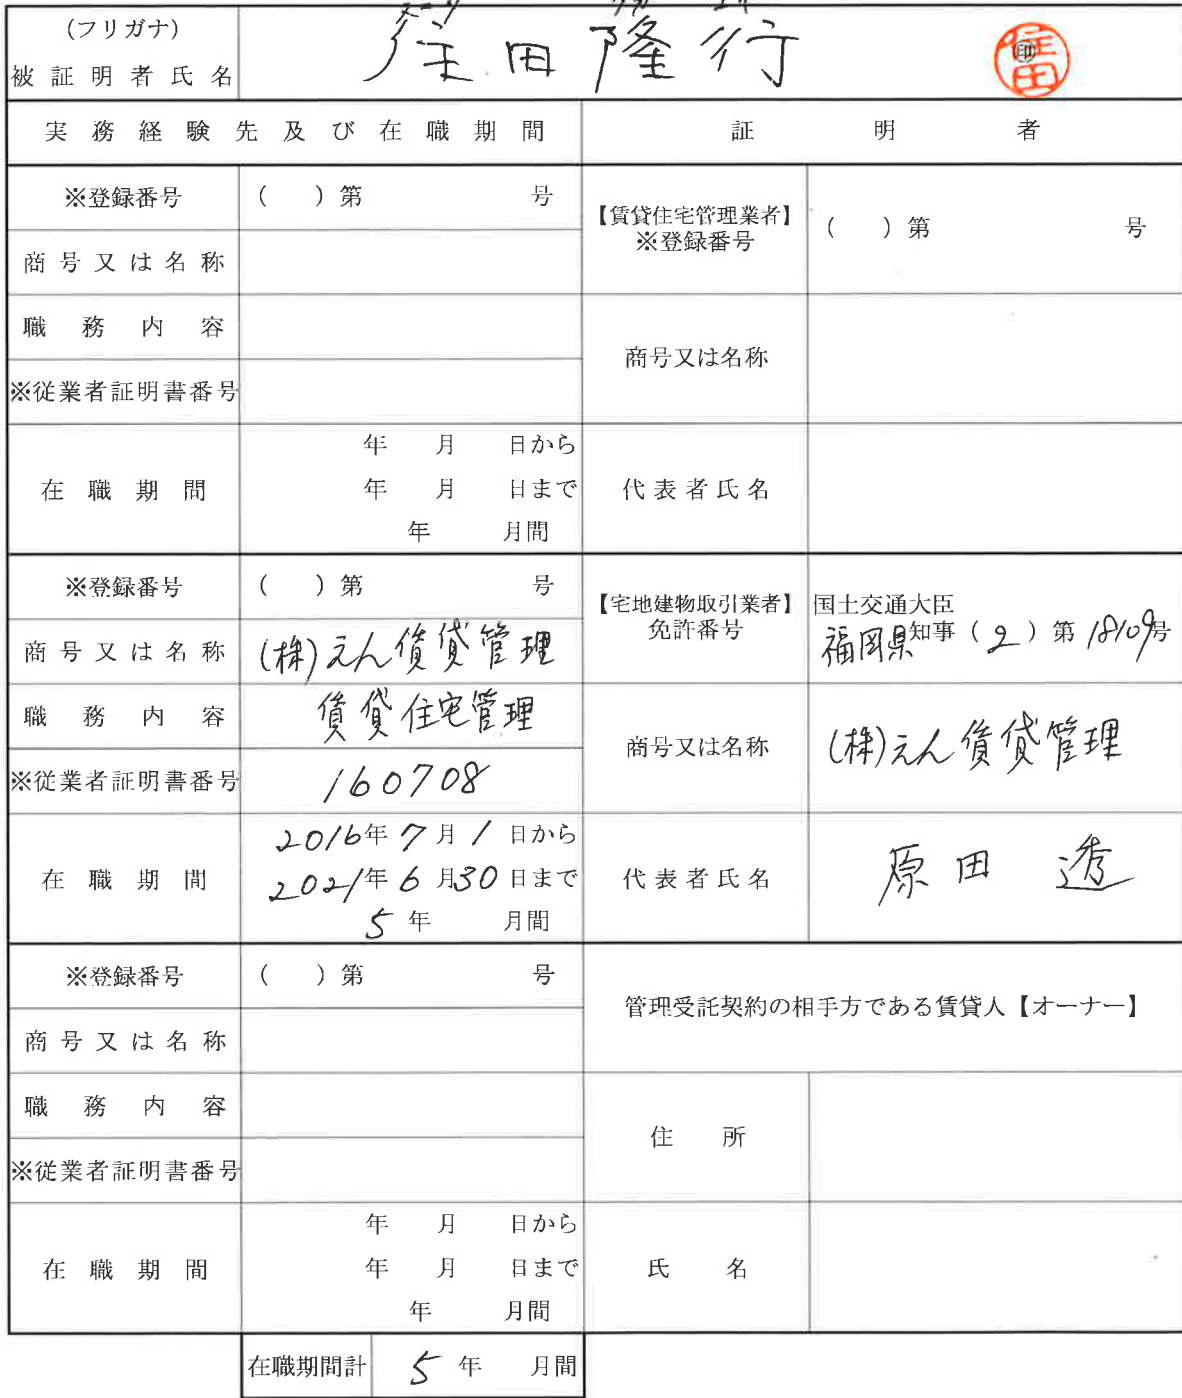 (フリガナ)
被証明者氏名 隆行 印
実務経験先及び在職期間 証明者
※登録番号 ( )第 号
商号又は名称
職務内容
※従業者証明書番号
在職期間 年 月 日から
年 月 日まで
年 月間
【賃貸住宅管理業者】
※登録番号 ( )第 号
商号又は名称
代表者氏名
※登録番号 ( )第 号
商号又は名称 (株)えん賃貸管理
職務内容 賃貸住宅管理
※従業者証明書番号 160708
在職期間 2016年7月1日から
2021年6月30日まで
5年 月間
【宅地建物取引業者】
免許番号 国土交通大臣
福岡県知事(2)第18109号
商号又は名称 (株)えん賃貸管理
代表者氏名 原田 透
※登録番号 ( )第 号
商号又は名称
職務内容
※従業者証明書番号
在職期間 年 月 日から
年 月 日まで
年 月間
管理受託契約の相手方である賃貸人【オーナー】
住所
氏名
在職期間計 5年 月間